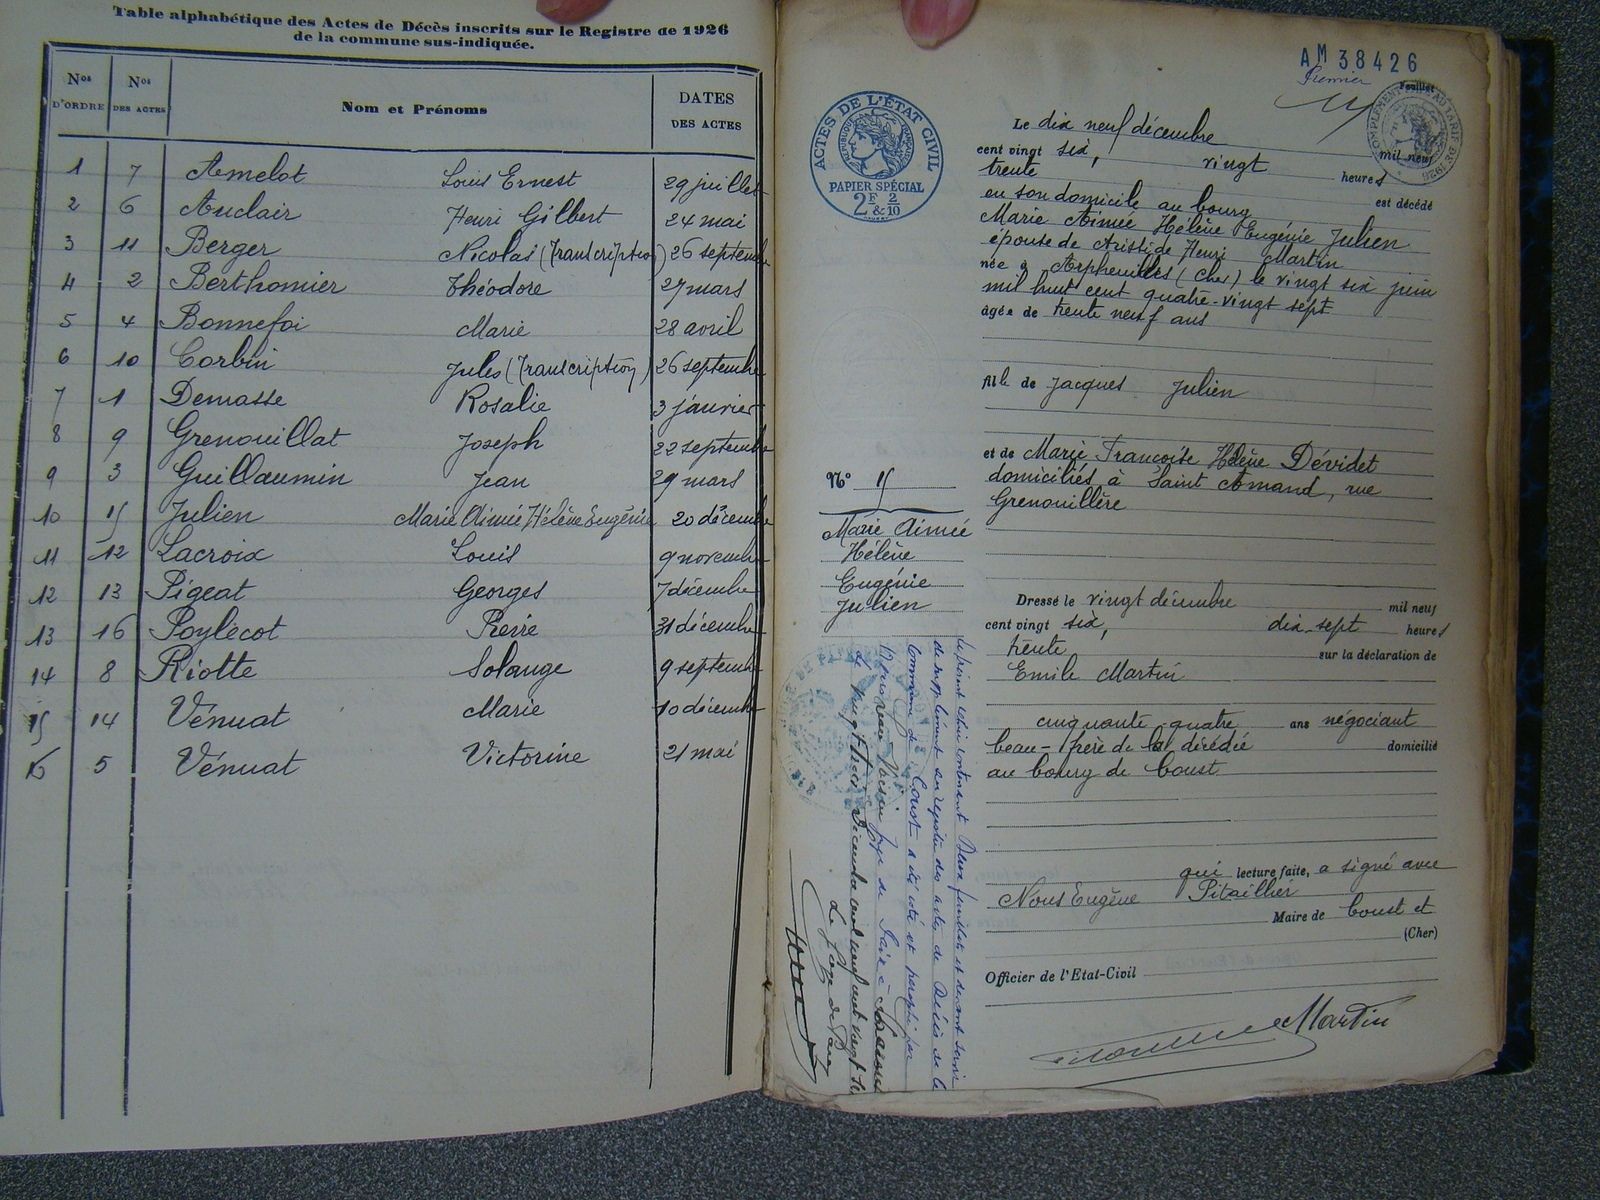 Table alphabétique des Actes de Décès inscrits sur le Registre de 1926
de la commune sus-indiquée.
Nos D'ORDRE Nos DES ACTES Nom et Prénoms DATES DES ACTES
1 7 Amelot Louis Ernest 29 juillet
2 6 Auclair Henri Gilbert 24 mai
3 11 Berger Nicolas (Transcription) 26 septembre
4 2 Berthomier Théodore 27 mars
5 4 Bonnefoi Marie 28 avril
6 10 Corbin Jules (Transcription) 26 septembre
7 1 Demasse Rosalie 3 janvier
8 9 Grenouillat Joseph 22 septembre
9 3 Guillaumin Jean 29 mars
10 15 Julien Marie Aimée Hélène Eugénie 20 décembre
11 12 Lacroix Louis 9 novembre
12 13 Pigeat Georges 7 décembre
13 16 Poylecot Pierre 31 décembre
14 8 Riotte Solange 9 septembre
15 14 Vénuat Marie 10 décembre
16 5 Vénuat Victorine 21 mai
AM 38426
Premier Feuillet
ACTES DE L'ÉTAT CIVIL
RÉPUBLIQUE FRANÇAISE
PAPIER SPÉCIAL
2F & 2/10
Le dix neuf décembre mil neuf
cent vingt six, vingt heures
trente est décédé
en son domicile au bourg
Marie Aimée Hélène Eugénie Julien
épouse de Aristide Henri Martin
née à Arpheuilles (Cher) le vingt six juin
mil huit cent quatre-vingt sept
âgée de trente neuf ans
fille de Jacques Julien
et de Marie Françoise Hélène Dévidet
domiciliés à Saint Amand, rue
Grenouillère
No 15
Marie Aimée
Hélène
Eugénie
Julien
Dressé le vingt décembre mil neuf
cent vingt six, dix-sept heures
trente sur la déclaration de
Emile Martin
cinquante quatre ans négociant
beau-frère de la décédée domicilié
au bourg de Coust
qui lecture faite, a signé avec
Nous Eugène Pitaillier
Maire de Coust et
(Cher)
Officier de l'Etat-Civil
Martin
Le présent cahier contenant Deux feuillets et devant servir
de supplément au registre des actes de Décès de la
commune de Coust a été coté et paraphé par
Nous juge de Paix à
Le vingt trois Décembre mil neuf cent vingt six
Le Juge de Paix